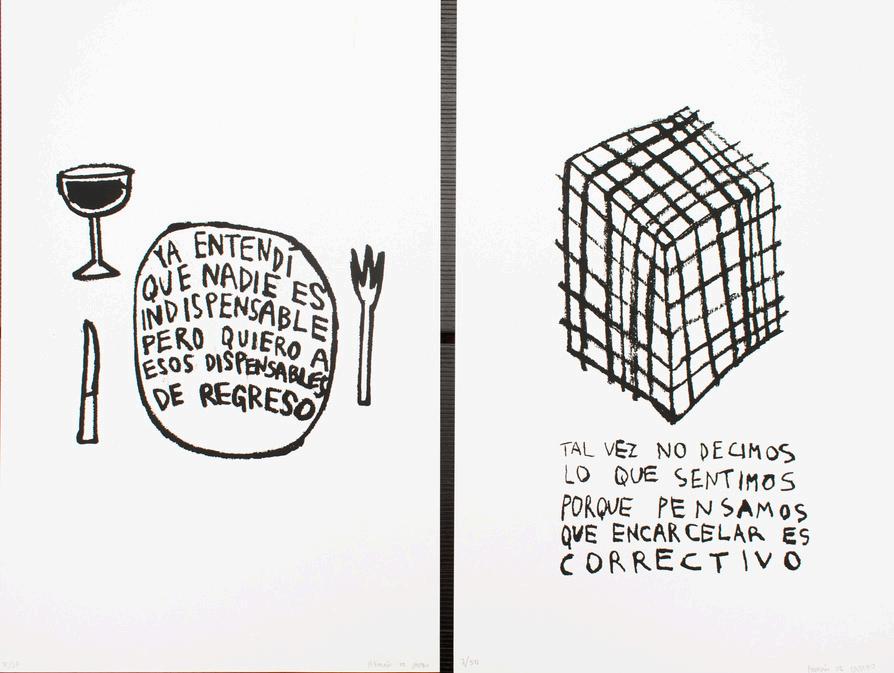 YA ENTENDÍ
QUE NADIE ES
INDISPENSABLE
PERO QUIERO A
ESOS DISPENSABLES
DE REGRESO
TAL VEZ NO DECIMOS
LO QUE SENTIMOS
PORQUE PENSAMOS
QUE ENCARCELAR ES
CORRECTIVO